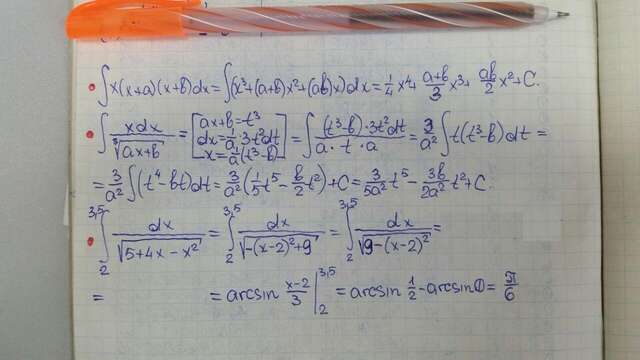 ∫x(x+a)(x+b)dx = ∫(x³+(a+b)x²+(ab)x)dx = 1/4 x⁴ + (a+b)/3 x³ + ab/2 x² + C.
∫ xdx/∛(ax+b) = [ax+b=t³; dx=1/a·3t²dt; x=1/a(t³-b)] = ∫ (t³-b)·3t²dt/(a·t·a) = 3/a² ∫t(t³-b)dt =
= 3/a² ∫(t⁴-bt)dt = 3/a² (1/5 t⁵ - b/2 t²) + C = 3/5a² t⁵ - 3b/2a² t² + C.
∫₂^3,5 dx/√(5+4x-x²) = ∫₂^3,5 dx/√(-(x-2)²+9) = ∫₂^3,5 dx/√(9-(x-2)²) =
= = arcsin (x-2)/3 |₂^3,5 = arcsin 1/2 - arcsin 0 = π/6